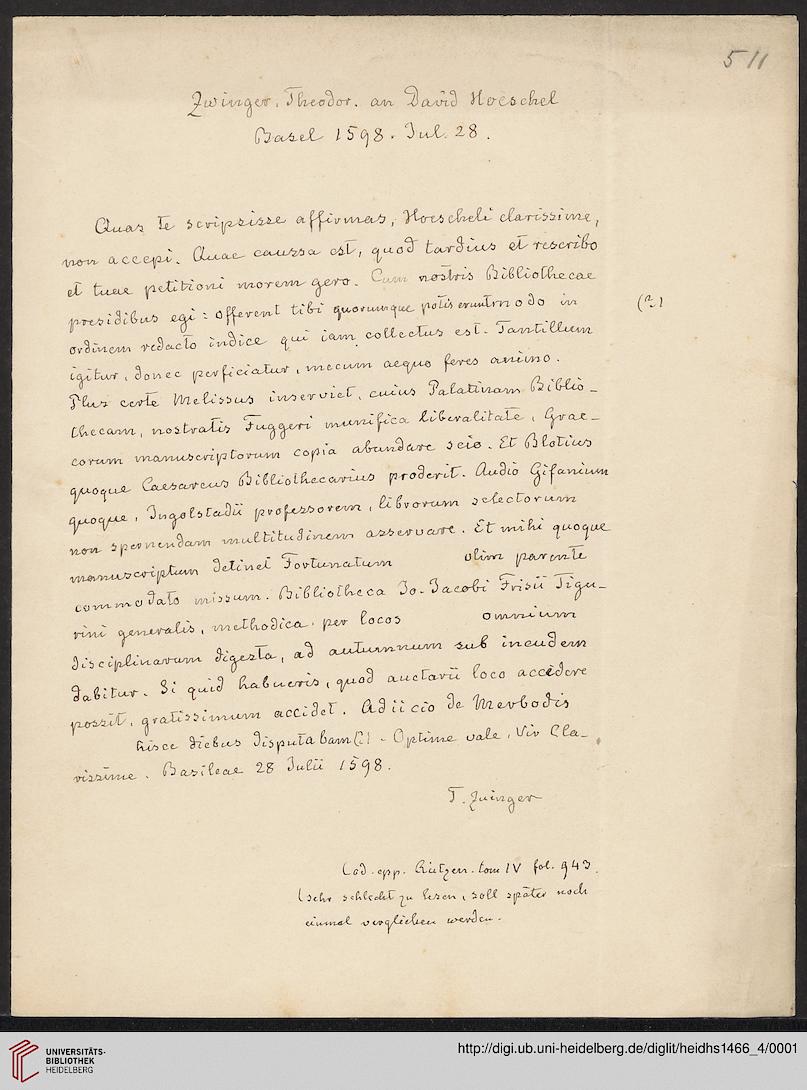 511
Zwinger, Theodor. an David Hoeschel
Basel 1598. Jul. 28.
Quas te scripsisse affirmas, Hoescheli clarissime,
non accepi. Quae caussa est, quod tardius et rescribo
et tuae petitioni morem gero. Cum nostris Bibliothecae
presidibus egi: offerent tibi quorumque potis erunt modo in (?)
ordinem redacto indice qui iam collectus est. Tantillum
igitur, donec perficiatur, mecum aequo feres animo.
Plus certe Melissus inserviet, cuius Palatinam Biblio-
thecam, nostratis Fuggeri munifica liberalitate, Grae-
corum manuscriptorum copia abundare scio. Et Blotius
quoque Caesareus Bibliothecarius proderit. Audio Gifanium
quoque, Ingolstadii professorem, librorum selectorum
non spernendam multitudinem asservare. Et mihi quoque
manuscriptum detinet Fortunatum olim parente
commodato missum. Bibliotheca Jo. Jacobi Frisii Tigu-
rini generalis, methodica, per locos omnium
disciplinarum digesta, ad autumnum sub incudem
dabitur. Si quid habueris, quod auctarii loco accedere
possit, gratissimum accidet. Adiicio de Merbodis
hisce diebus disputabam(?) - Optime vale, Vir Cla-
rissime. Basileae 28 Julii 1598.
T. Zuinger
Cod. epp. tom IV fol. 943.
(sehr schlecht zu lesen, soll später noch
einmal verglichen werden.
UNIVERSITÄTS-
BIBLIOTHEK
HEIDELBERG
http://digi.ub.uni-heidelberg.de/diglit/heidhs1466_4/0001